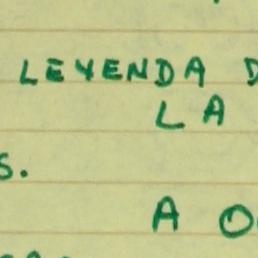 LEYENDA D
LA
S.
A O